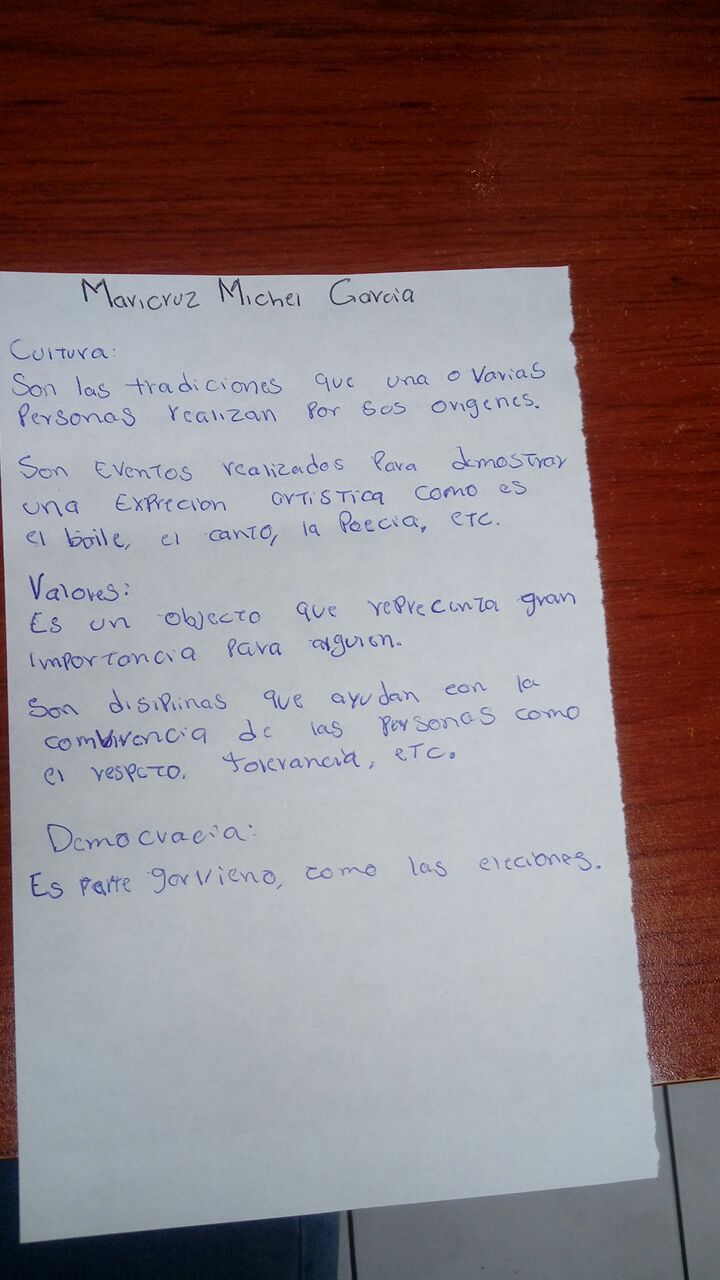 Maricruz Michel Garcia
Cultura:
Son las tradiciones que una o varias
Personas realizan por sus origenes.
Son Eventos realizados Para demostrar
una Exprecion artistica como es
el baile, el canto, la Poecia, etc.
Valores:
Es un objecto que reprecenta gran
importancia para alguien.
Son disiplinas que ayudan con la
combivencia de las personas como
el respeto, tolerancia, etc.
Democracia:
Es parte gorvieno, como las elecciones.